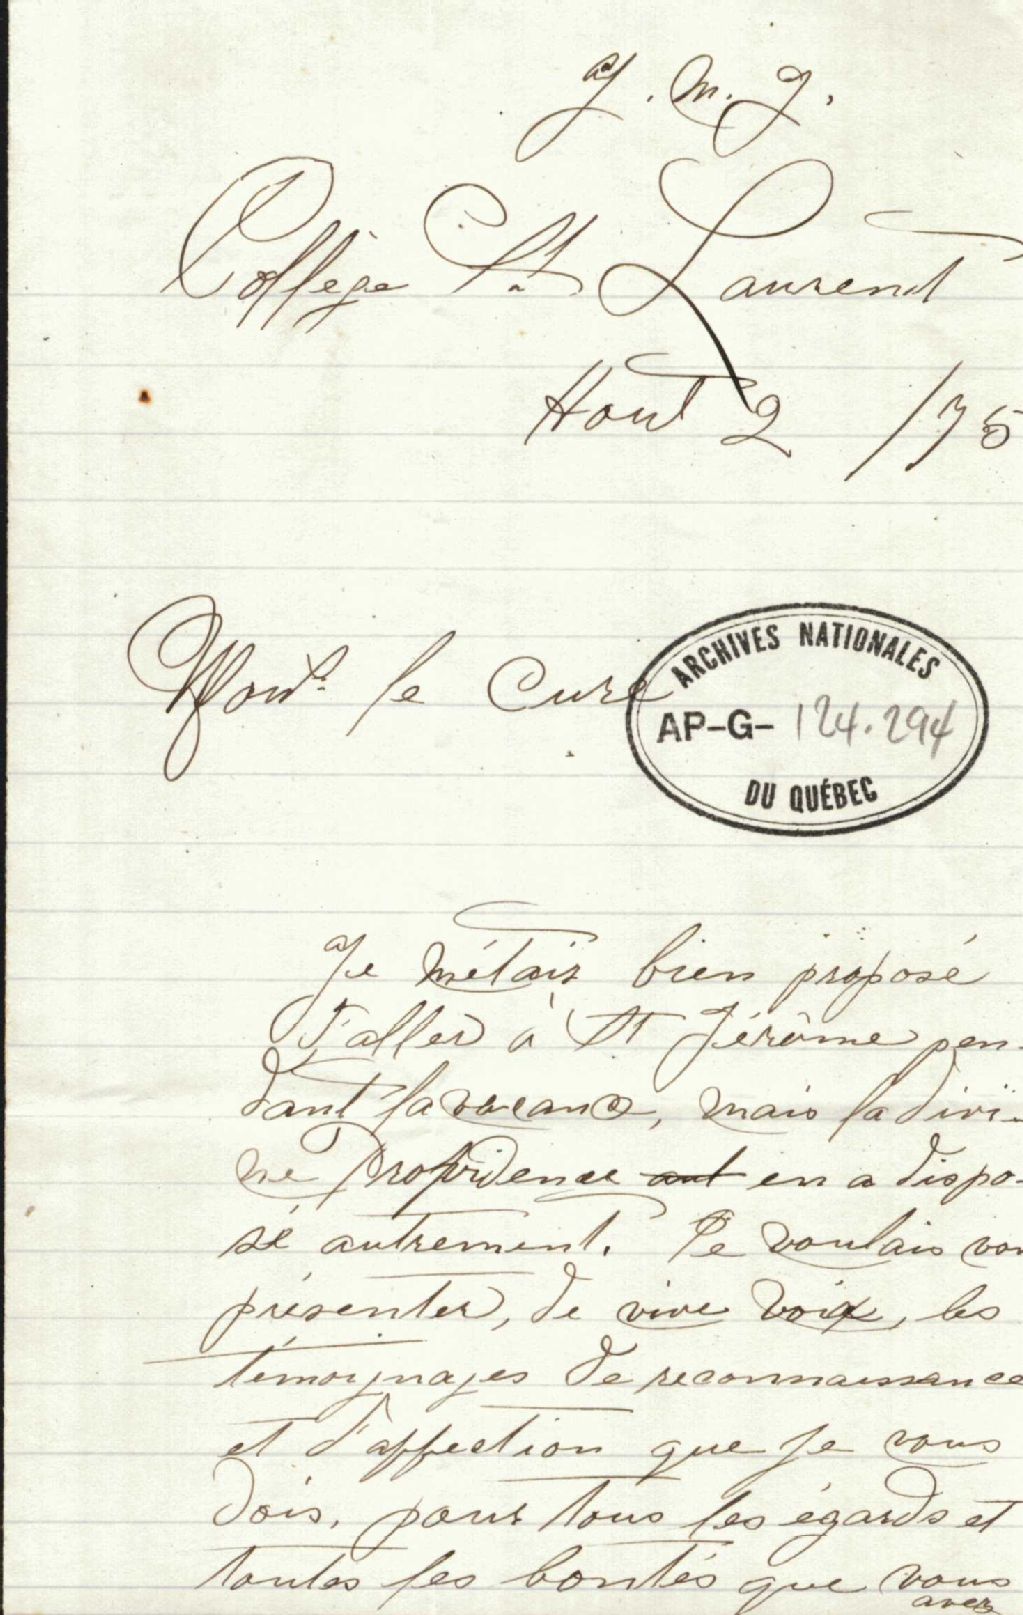 J. M. J.
Collège St. Laurent
Aout 2 /75
Mons. le Curé
ARCHIVES NATIONALES
AP-G- 124.294
DU QUÉBEC
Je m'étais bien proposé
d'aller à St Jérôme pen-
dant la vacance, mais la divi-
ne Providence en a dispo-
sé autrement. Je voulais vous
présenter, de vive voix, les
témoignages de reconnaissance
et d'affection que je vous
dois, pour tous les égards et
toutes les bontés que vous
avez